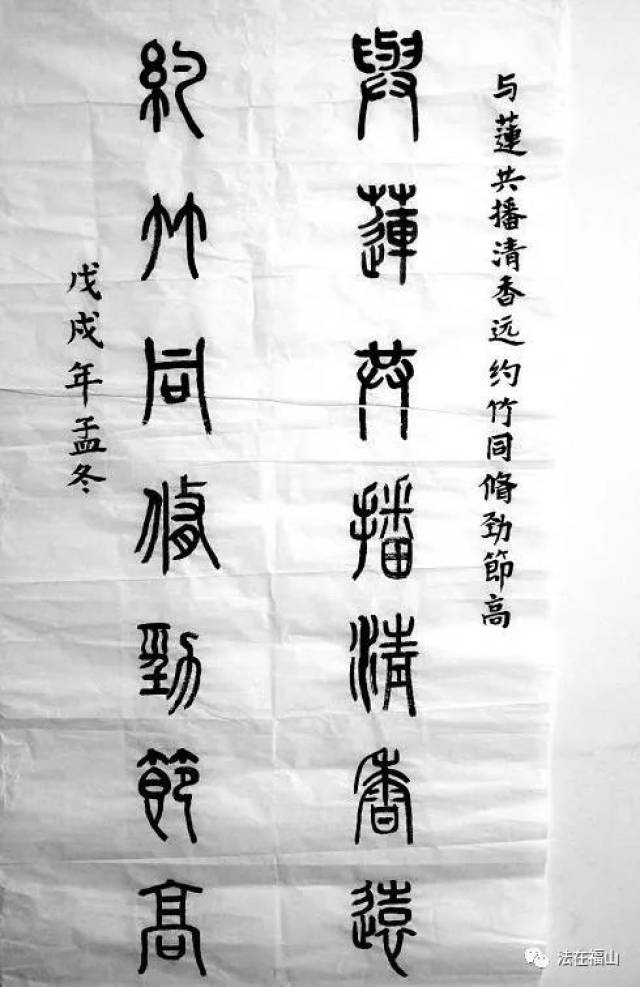 与蓮共播清香远约竹同脩劲節高
與蓮共播清香遠
約竹同脩勁節高
戊戌年孟冬
法在福山